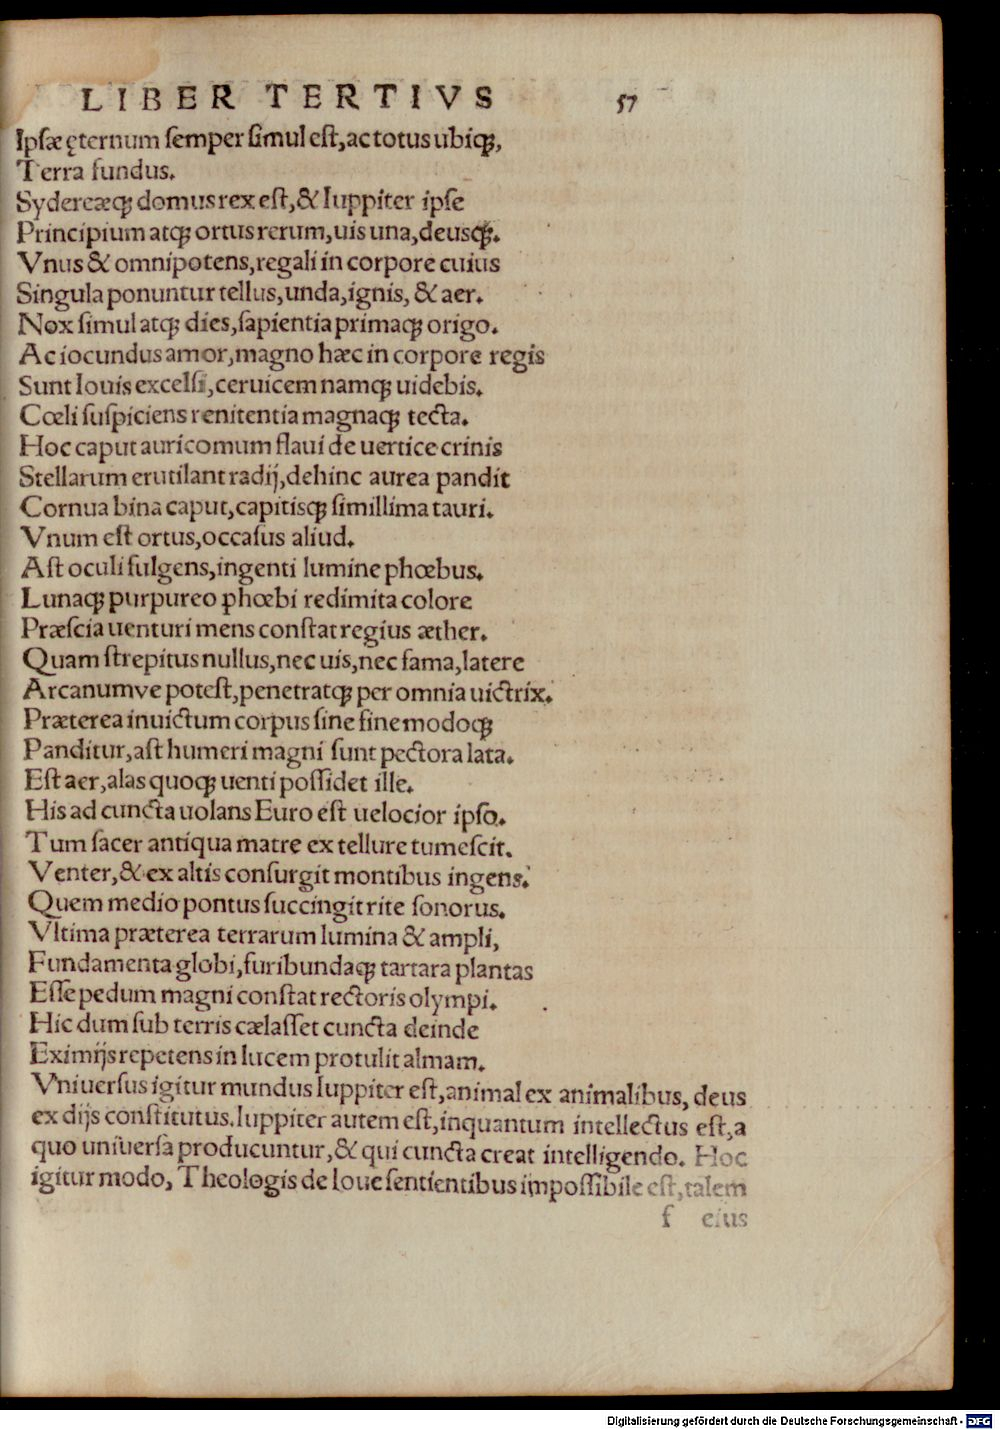 LIBER TERTIVS 57
Ipsæ ęternum semper simul est, ac totus ubiqꝫ,
Terra fundus.
Sydereæqꝫ domus rex est, & Iuppiter ipse
Principium atqꝫ ortus rerum, uis una, deusqꝫ.
Vnus & omnipotens, regali in corpore cuius
Singula ponuntur tellus, unda, ignis, & aer.
Nox simul atqꝫ dies, sapientia primaqꝫ origo.
Ac iocundus amor, magno hæc in corpore regis
Sunt Iouis excelsi, ceruicem namqꝫ uidebis.
Cœli suspiciens renitentia magnaqꝫ tecta.
Hoc caput auricomum flaui de uertice crinis
Stellarum erutilant radij, dehinc aurea pandit
Cornua bina caput, capitisqꝫ simillima tauri.
Vnum est ortus, occasus aliud.
Ast oculi fulgens, ingenti lumine phœbus.
Lunaqꝫ purpureo phœbi redimita colore
Præscia uenturi mens constat regius æther.
Quam strepitus nullus, nec uis, nec fama, latere
Arcanumve potest, penetratqꝫ per omnia uictrix.
Præterea inuictum corpus sine fine modoqꝫ
Panditur, ast humeri magni sunt pectora lata.
Est aer, alas quoqꝫ uenti possidet ille.
His ad cuncta uolans Euro est uelocior ipso.
Tum sacer antiqua matre ex tellure tumescit.
Venter, & ex altis consurgit montibus ingens.
Quem medio pontus succingit rite sonorus.
Vltima præterea terrarum lumina & ampli,
Fundamenta globi, furibundaqꝫ tartara plantas
Esse pedum magni constat rectoris olympi.
Hic dum sub terris cælasset cuncta deinde
Eximijs repetens in lucem protulit almam.
Vniuersus igitur mundus Iuppiter est, animal ex animalibus, deus
ex dijs constitutus. Iuppiter autem est, inquantum intellectus est, a
quo uniuersa producuntur, & qui cuncta creat intelligendo. Hoc
igitur modo, Theologis de Ioue sentientibus impossibile est, talem
f eius
Digitalisierung gefördert durch die Deutsche Forschungsgemeinschaft - DFG